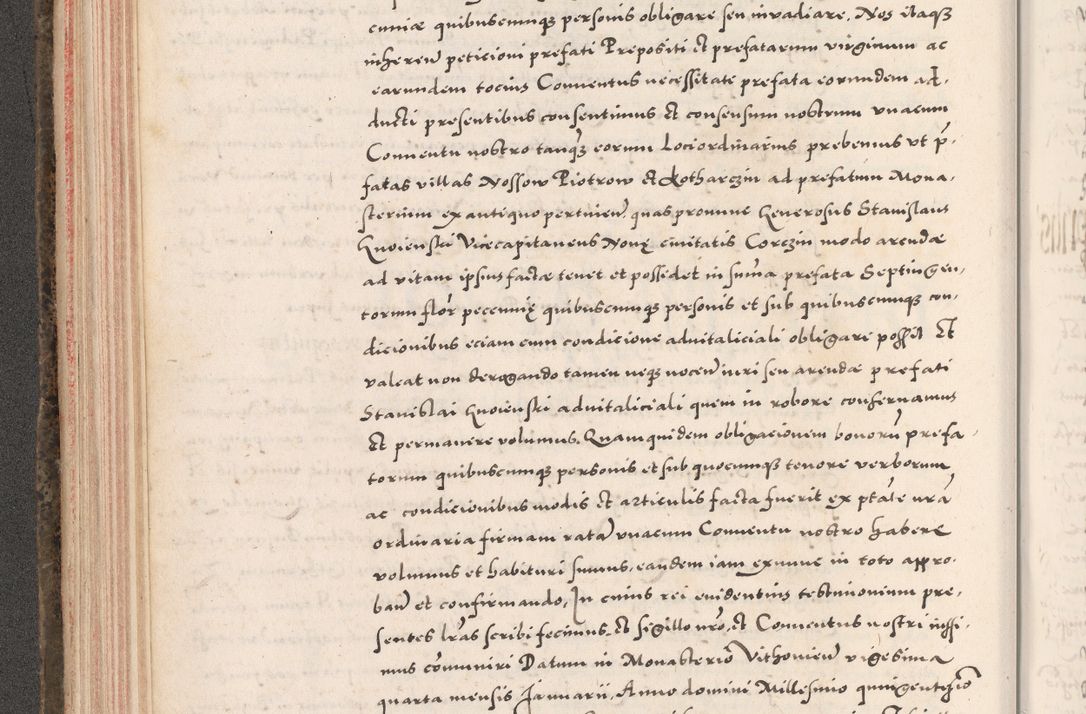 cuniæ quibuscunqȝ personis obligare seu invadiare. Nos itaqȝ
inheren̄ peticioni prefati Prepositi et prefatarum virginum ac
earundem tocius Conuentus necessitate prefata eorundem ad-
ducti presentibus consentimus et consensum nostrum vnacum
Conuentu nostro tanqȝ eorum Lociordinarius prebemus vt p̄-
fatas villas Nossow Piotrow et Kotharczin ad prefatum Mona-
sterium ex antiquo pertinen̄. quas pronunc Generosus Stanislaus
Gnoienski Vicecapitaneus Nouę ciuitatis Corczin modo arendæ
ad vitam ipsius factæ tenet et possidet in sum̄a prefata Septingen-
torum flor̄ pecunnię quibuscunqȝ personis et sub quibuscunqȝ con-
dicionibus eciam cum condicione aduitaliciali obligare possit Et
valeat non derogando tamen neqȝ nocen̄ iuri seu arendæ prefati
Stanislai Gnoienski aduitaliciali quem in robore conseruamus
et permanere volumus. Quamquidem obligacionem bonorū prefa-
torum quibuscunqȝ personis et sub quocunqȝ tenore verborum
ac condicionibus modis et articulis facta fuerit ex ptāte nrā
ordinaria firmam ratā vnacum Conuentu nostro habere
volumus et habituri sumus, eandem iam exnunc in toto appro-
ban̄ et confirmando, In cuius rei euidentius testimonium pre-
sentes lrās scribi fecimus, et sigillo nrō, et Conuentus nostri iussi-
mus com̄uniri Datum in Monasterio Vithouien̄ vigesima
quarta mensis Januarii, Anno domini Millesimo quingentesio